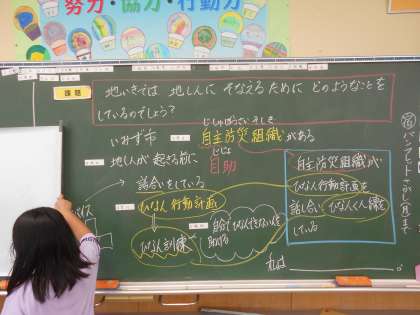 努力・協力・行動力
課題
地いきでは 地しんに そなえるために どのようなことを
しているのでしょう？
いみず市
じしゅぼうさいそしき
自主防災組織がある
地しんが 起きる前に
じじょ
自助
話合いをしている
ひなん行動計画
ひなん訓練
自主防災組織が
ひなん行動計画を
話し合い ひなんくん練を
している
私は